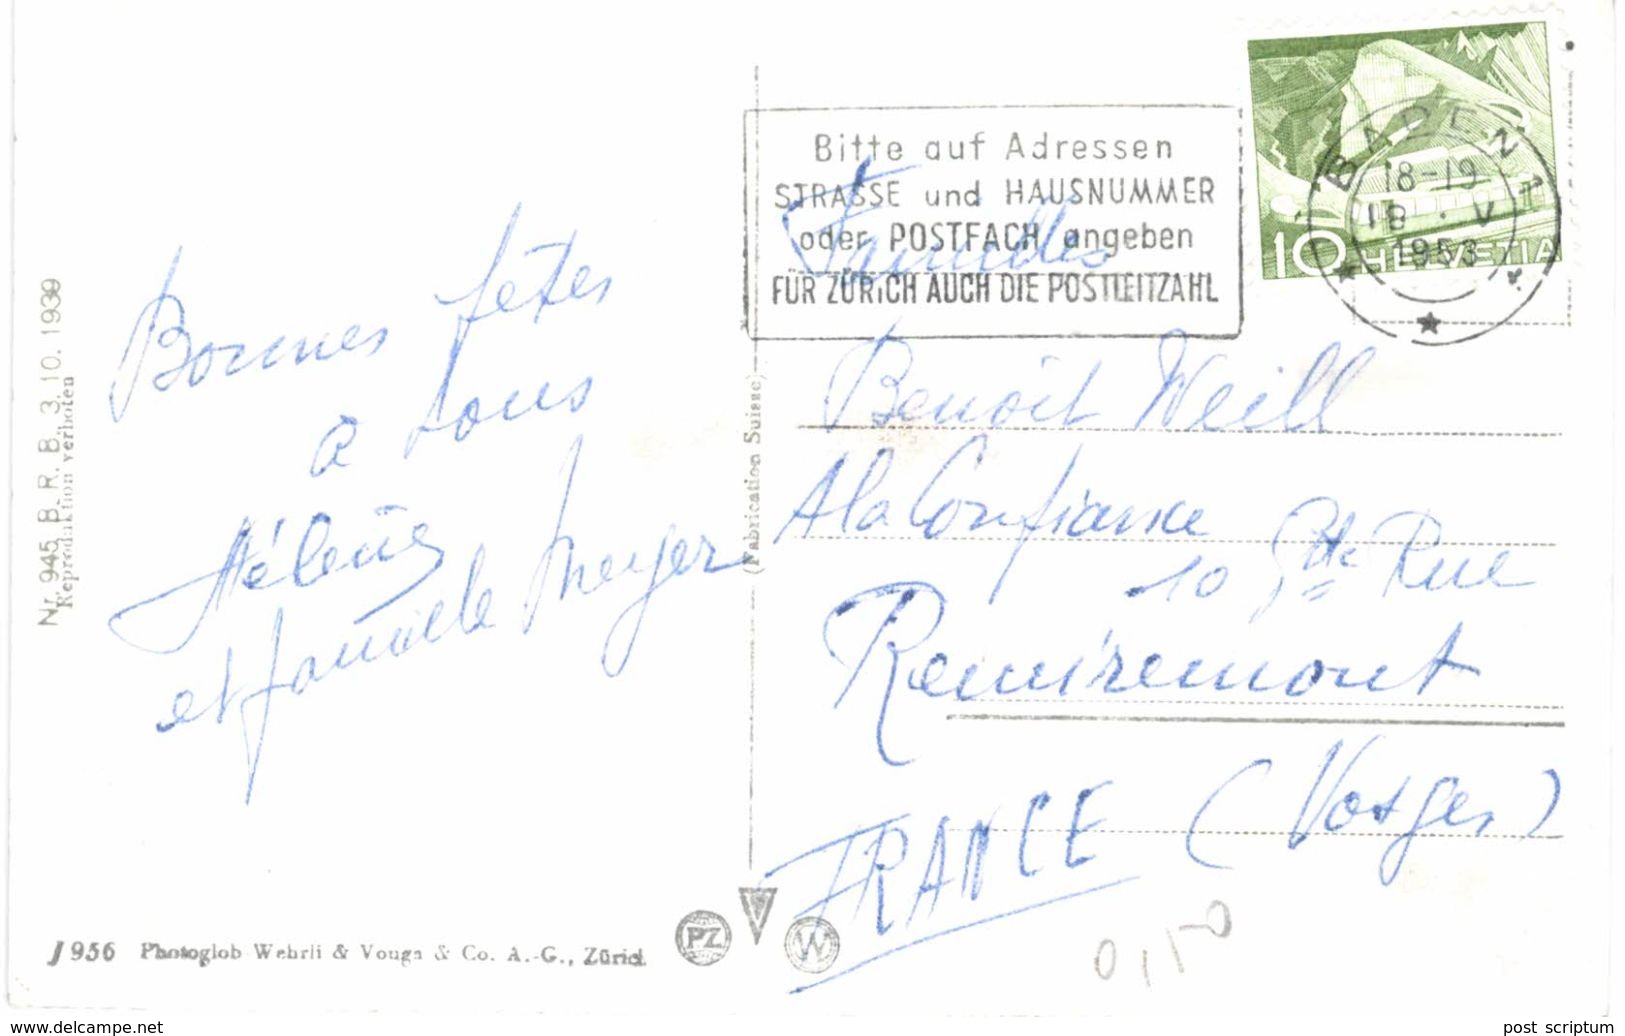 Nr. 945 B. R. B. 3. 10. 1939
Reproduktion verboten
Bonnes fêtes
à tous
Hélène
et famille Meyer
J 956 Photoglob Wehrli & Vouga & Co. A.-G., Zürich
PZ
V
W
(Fabrication Suisse)
Bitte auf Adressen
STRASSE und HAUSNUMMER
oder POSTFACH angeben
FÜR ZÜRICH AUCH DIE POSTLEITZAHL
10 HELVETIA
BADEN 1
18-19
18 · V
1953
Familles
Benoit Weill
A la Confiance
10 Gde Rue
Remiremont
(Vosges)
FRANCE
0,150
www.delcampe.net
post scriptum